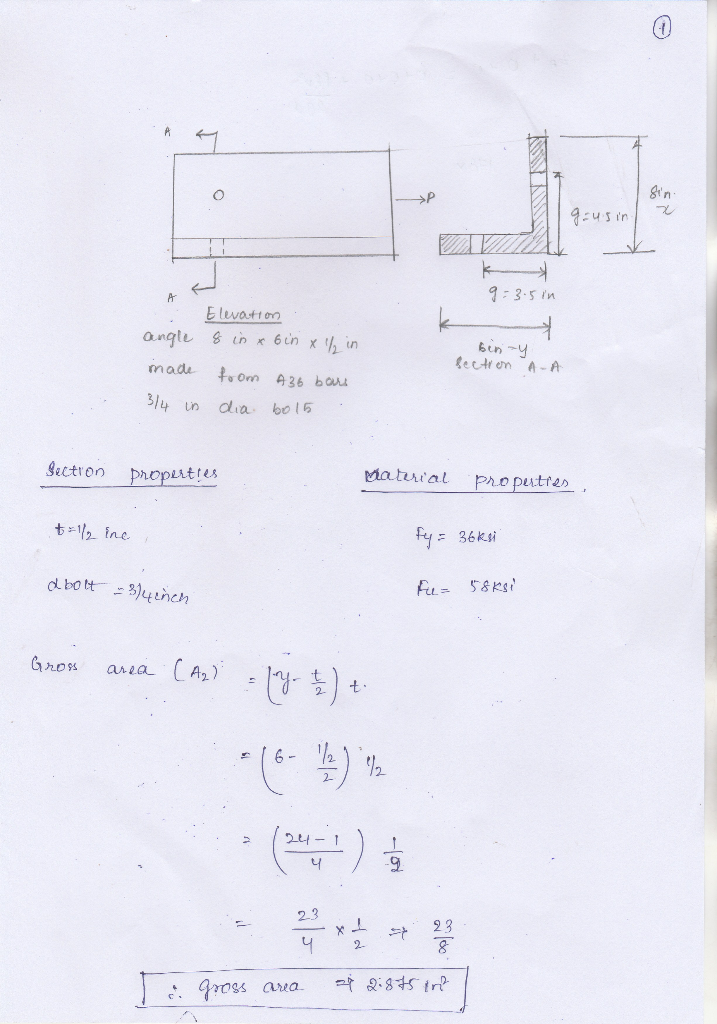 1
A
P
8in.
x
g=4.5 in
g=3.5 in
A
Elevation
angle 8 in x 6in x 1/2 in
made from A36 bars
3/4 in dia. bolt
6in -y
Section A-A
Section properties
Material properties.
t=1/2 inc
Fy = 36ksi
dbolt = 3/4 inch
Fu = 58ksi
Gross area (A2) = (y - t/2) t.
= (6 - 1/2/2) 1/2
= (24-1/4) 1/2
= 23/4 x 1/2 ⇒ 23/8
∴ gross area ⇒ 2.875 in²